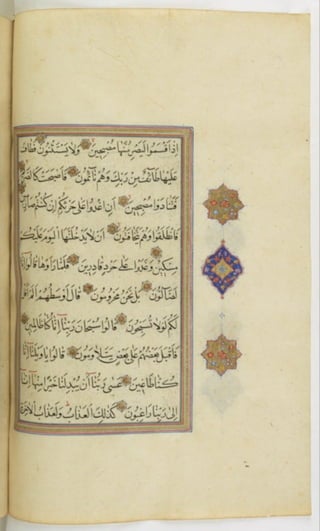 اِذْ اَقْسَمُوا لَيَصْرِمُنَّهَا مُصْبِحِينَ وَلَا يَسْتَثْنُونَ فَطَافَ
عَلَيْهَا طَائِفٌ مِنْ رَبِّكَ وَهُمْ نَائِمُونَ فَاَصْبَحَتْ كَالصَّرِيمِ
فَتَنَادَوْا مُصْبِحِينَ اَنِ اغْدُوا عَلٰى حَرْثِكُمْ اِنْ كُنْتُمْ صَارِمِينَ
فَانْطَلَقُوا وَهُمْ يَتَخَافَتُونَ اَنْ لَا يَدْخُلَنَّهَا الْيَوْمَ عَلَيْكُمْ
مِسْكِينٌ وَغَدَوْا عَلٰى حَرْدٍ قَادِرِينَ فَلَمَّا رَاَوْهَا قَالُوا اِنَّا
لَضَالُّونَ بَلْ نَحْنُ مَحْرُومُونَ قَالَ اَوْسَطُهُمْ اَلَمْ اَقُلْ
لَكُمْ لَوْلَا تُسَبِّحُونَ قَالُوا سُبْحَانَ رَبِّنَا اِنَّا كُنَّا ظَالِمِينَ
فَاَقْبَلَ بَعْضُهُمْ عَلٰى بَعْضٍ يَتَلَاوَمُونَ قَالُوا يَا وَيْلَنَا اِنَّا
كُنَّا طَاغِينَ عَسٰى رَبُّنَا اَنْ يُبْدِلَنَا خَيْرًا مِنْهَا اِنَّا
اِلٰى رَبِّنَا رَاغِبُونَ كَذٰلِكَ الْعَذَابُ وَلَعَذَابُ الْاٰخِرَةِ